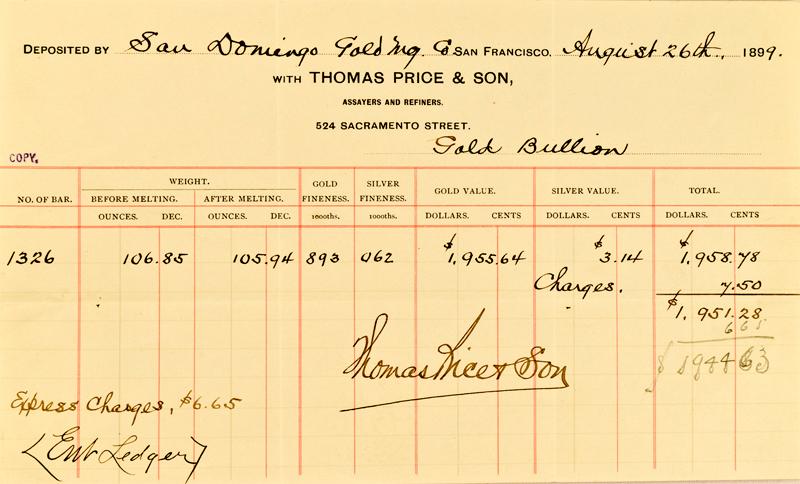 DEPOSITED BY San Domingo Gold Mg. Co SAN FRANCISCO, August 26th, 1899.
WITH THOMAS PRICE & SON,
ASSAYERS AND REFINERS.
524 SACRAMENTO STREET.
Gold Bullion
COPY.
NO. OF BAR. WEIGHT. GOLD FINENESS. SILVER FINENESS. GOLD VALUE. SILVER VALUE. TOTAL.
BEFORE MELTING. AFTER MELTING.
OUNCES. DEC. OUNCES. DEC. 1000ths. 1000ths. DOLLARS. CENTS DOLLARS. CENTS DOLLARS. CENTS
1326 106.85 105.94 893 062 $1,955.64 $3.14 $1,958.78
Charges. 7.50
$1,951.28
665
Thomas Price & Son $194463
Express Charges, $6.65
(Ent Ledger)